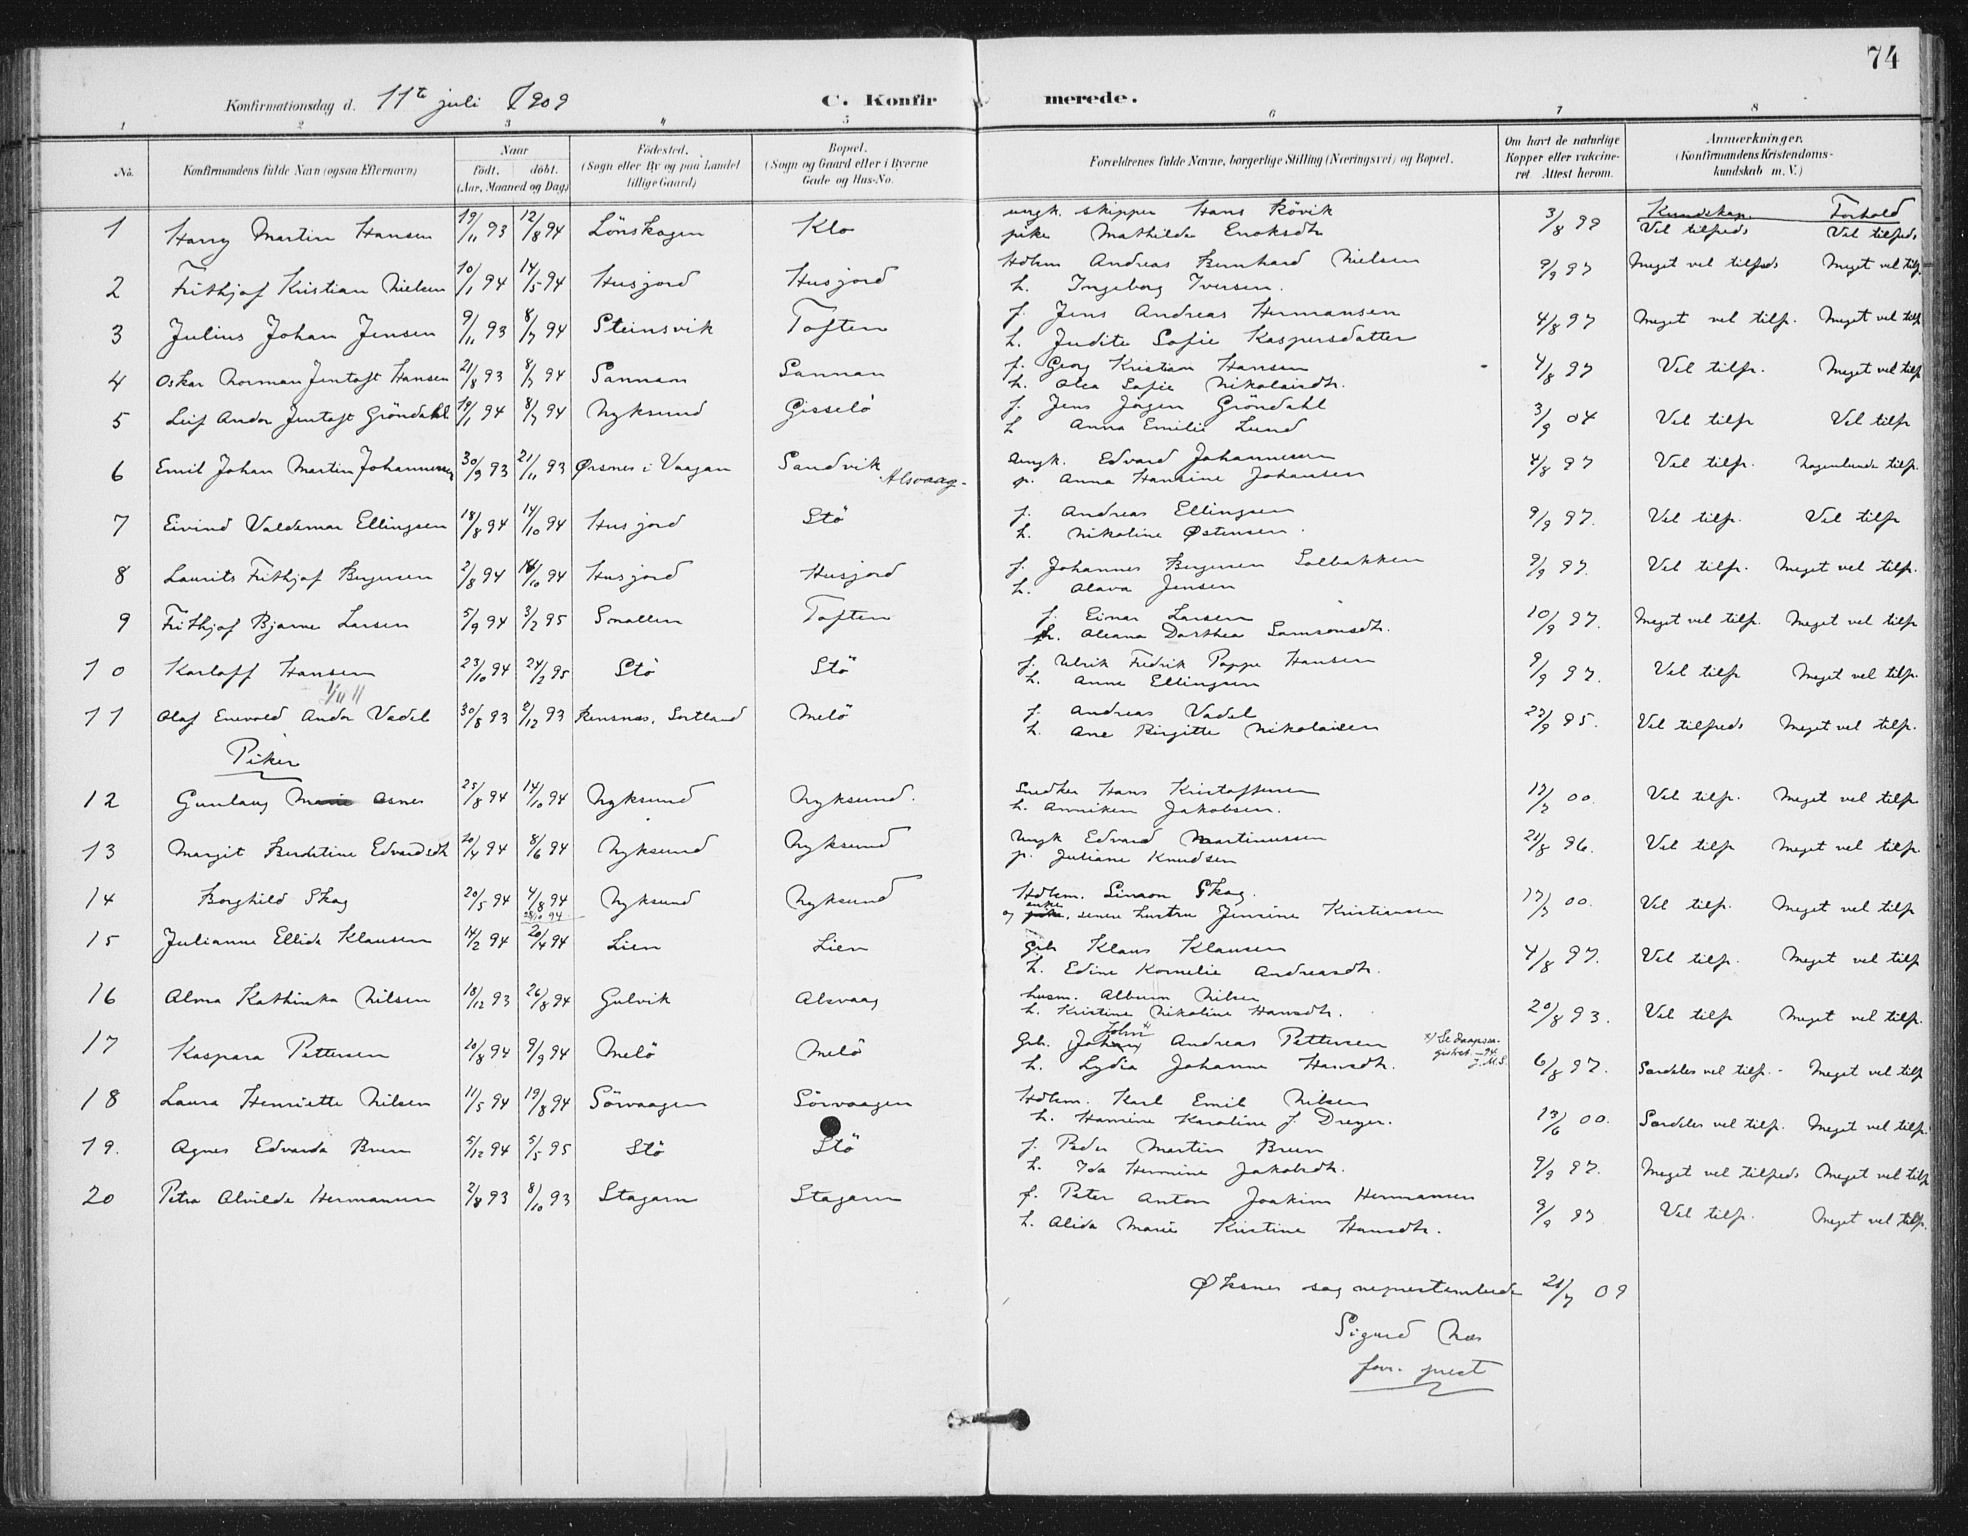 74
Konfirmationsdag d. 11te juli 1909
C. Konfirmerede.
1 2 3 4 5 6 7 8
No.
Konfirmandens fulde Navn (ogsaa Efternavn)
Naar
födt. döbt.
(Aar, Maaned og Dag)
Födested.
(Sogn eller By og paa Landet
tillige Gaard)
Bopæl.
(Sogn og Gaard eller i Byerne
Gade og Hus-No.
Forældrenes fulde Navne, borgerlige Stilling (Næringsvei) og Bopæl.
Om havt de naturlige
Kopper eller vakcine-
ret. Attest herom.
Anmærkninger.
(Konfirmandens Kristendoms-
kundskab m. V.)
Kundskap. Forhold
1 Harry Martin Hansen 19/11 93 12/8 94 Lönskogen Klo ungk. skipper Hans Rövik 3/8 99 Vel tilfreds Vel tilfreds
pike Mathilde Enoksdtr
2 Frithjof Kristian Nielsen 10/1 94 14/5 94 Husjord Husjord Hdlsm Andreas Bernhard Nielsen 9/9 97 Meget vel tilfreds Meget vel tilf.
h. Ingeborg Iversen.
3 Julius Johan Jensen 9/11 93 8/7 94 Steinsvik Toften f. Jens Andreas Hermansen 4/8 97 Meget vel tilfr. Meget vel tilf
h. Judite Sofie Kaspersdatter
4 Oskar Norman Jentoft Hansen 21/8 93 8/7 94 Sannan Sannan f. Georg Kristian Hansen 4/8 97 Vel tilfr. Meget vel tilf
h. Alea Sofie Nikolaisdtr.
5 Leif Andor Jentoft Gröndahl 19/1 94 8/7 94 Nyksund Gisselö f. Jens Jörgen Gröndahl 3/9 04 Vel tilfr Vel tilfr
h Anna Emilie Lund
6 Emil Johan Martin Johannessen 30/9 93 21/11 93 Ørsnes i Vaagan Sandvik Alsvaag- Ungk. Edvard Johannessen 4/8 97 Vel tilfr. Nogenlunde tilfr.
p. Anna Hansine Johansen
7 Eivind Valdemar Ellingsen 18/8 94 14/10 94 Husjord Stö f. Andreas Ellingsen 9/9 97. Vel tilfr. Vel tilfr
h. Nikoline Østensen.
8 Laurits Frithjof Bergersen 2/8 94 14/10 94 Husjord Husjord f. Johannes Bergersen Solbakken 9/9 97. Vel tilfr. Meget vel tilfr.
h. Olava Jensen
9 Frithjof Bjarne Larsen 5/9 94 3/2 95 Smollen Toften f. Einar Larsen 10/9 97. Meget vel tilfr. Meget vel tilfr
h. Oleana Dorthea Samsonsdtr.
10 Karloff Hansen 23/10 94 24/2 95 Stö Stö f. Ulrik Fredrik Poppe Hansen 9/9 97. Vel tilfr Meget vel tilfr.
h. Anne Ellingsen
1/4 11
11 Olaf Enevold Andor Vadel 30/8 93 2/12 93 Rensnæs, Sortland Melö f. Andreas Vadel 23/9 95. Vel tilfreds Meget vel tilfr.
h. Ane Birgitte Nikolaisen
Piker
12 Gunlaug Marie Asnes 25/8 94 14/10 94 Nyksund Nyksund. Snedker Hans Kristoffersen 17/7 00. Vel tilfr. Meget vel tilfr
h. Anniken Jakobsen.
13 Margit Berdetine Edvardsdtr 20/4 94 8/6 94 Nyksund Nyksund Ungk Edvard Martinussen 21/8 96. Vel tilfr Meget vel tilfr.
p. Juliane Knudsen
14 Borghild Skog 20/5 94 4/8 94 28/10 94 Nyksund Nyksund Hdlsm. Simon Skog. 17/7 00. Vel tilfr. Meget vel tilfr
og pike enke, senere hustru Jensine Kristiansen
15 Julianne Ellida Klausen 14/2 94 20/4 94 Lien Lien Grb Klaus Klausen 4/8 97. Vel tilfr. Meget vel tilfr
h. Edine Kornelie Andreasdtr.
16 Alma Kathinka Nilsen 18/12 93 26/8 94 Gulvik Alsvaag husm. Album Nilsen 20/8 93. Vel tilfr Meget vel tilfr.
h. Kristine Nikoline Hansdtr.
17 Kaspara Pettersen 20/8 94 9/9 94 Melö Melö Grb. Johan John x) Andreas Pettersen x) Se daapsre-
gistret -94. J.M.S. 6/8 97. Særdeles vel tilfr.- Meget vel tilf
h. Lydia Johanne Hansdtr.
18 Laura Henriette Nilsen 11/5 94 19/8 94 Sörvaagen Sörvaagen Hdlsm. Karl Emil Nilsen 13/6 00. Særdeles vel tilfr. Meget vel tilfr.
h. Hansine Karoline J. Dreyer.
19. Agnes Edvarda Bruun 5/12 94 5/5 95 Stö Stö f. Peder Martin Bruun 9/9 97. Meget vel tilfreds Meget vel tilf
h. Ida Hermine Jakobsdtr.
20 Petra Alvilde Hermansen 2/8 93 8/10 93 Stagarn Stagarn f. Peter Anton Joakim Hermansen 9/9 97 Vel tilfr. Meget vel tilfr.
h. Alida Marie Kristine Hansdtr.
Øksnes sogneprestembede 21/7 09
Sigurd Næs
forr. prest